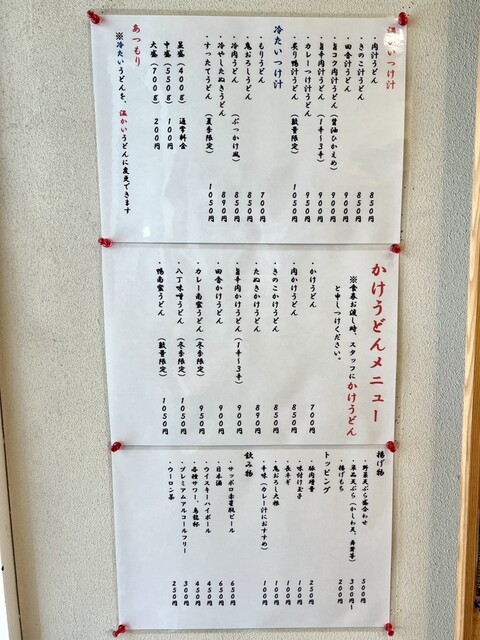 温かいつけ汁
・肉汁うどん 850円
・きのこ汁うどん 850円
・田舎汁うどん 900円
・旨コク肉汁うどん(醤油ひかえめ) 900円
・旨辛肉汁うどん(1辛～3辛) 900円
・カレーつけ汁うどん 950円
・炙り鴨汁うどん(数量限定) 1050円
冷たいつけ汁
・もりうどん 700円
・鬼おろしうどん 850円
・冷肉うどん(ぶっかけ風) 850円
・冷やしたぬきうどん 890円
・すったてうどん(夏季限定) 1050円
並盛(400g) 通常料金
中盛(550g) 100円
大盛(700g) 200円
あつもり
※冷たいうどんを、温かいうどんに変更できます
かけうどんメニュー
※食券お渡し時、スタッフにかけうどん
と申しつけください。
・かけうどん 700円
・肉かけうどん 850円
・きのこかけうどん 850円
・たぬきかけうどん 890円
・旨辛肉かけうどん(1辛～3辛) 900円
・田舎かけうどん 900円
・カレー南蛮うどん(冬季限定) 950円
・八丁味噌うどん(冬季限定) 1050円
・鴨南蛮うどん(数量限定) 1050円
揚げ物
・野菜天ぷら盛合わせ 500円
・単品天ぷら(かしわ天、舞茸等) 300円～
・揚げもち 200円
トッピング
・豚肉増量 250円
・味付け玉子 100円
・長ネギ 100円
・鬼おろし大根 100円
・辛味(カレー汁におすすめ) 100円
飲み物
・サッポロ赤星瓶ビール 650円
・日本酒 650円
・ウイスキーハイボール 450円
・各種サワー、烏龍杯 450円
・プレミアムアルコールフリー 300円
・ウーロン茶 250円